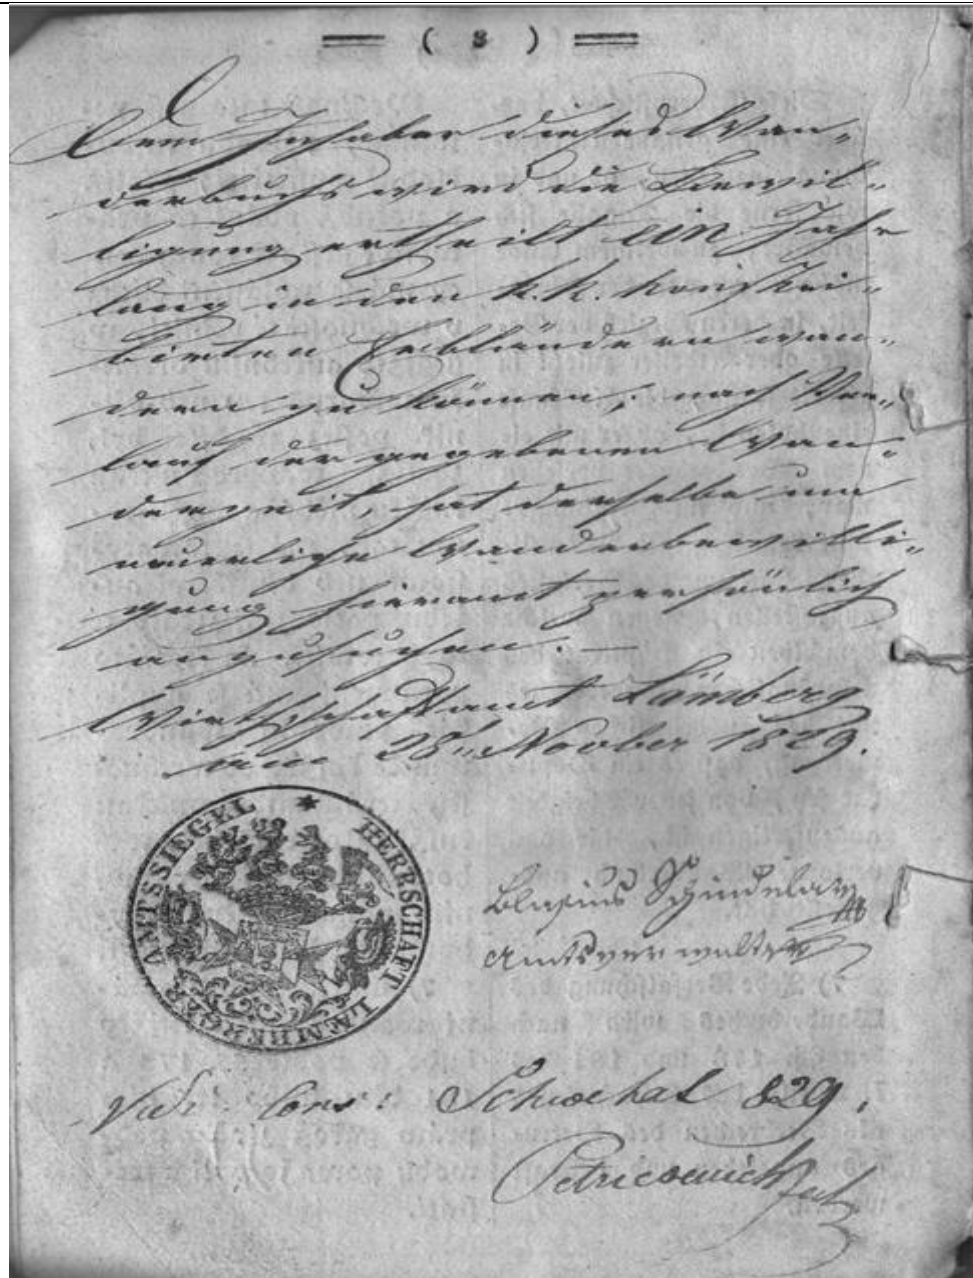 ( 8 )
Dem Inhaber dieses Wan-
derbuchs wird die Bewil-
ligung ertheilt ein Jahr
lang in den k. k. konskri-
birten Erbländern wan-
dern zu können; nach Ver-
lauf der gegebenen Wan-
derzeit, hat derselbe um
neuerliche Wanderbewilli-
gung hieramt persönlich
anzusuchen. —
Wirthschaftsamt Lämberg
am 25t. November 1829.
AMTSSIEGEL * HERRSCHAFT LAEMBERGER
Blasius Schindelarz
Amtsverwalter
Vidi Cons: 829.